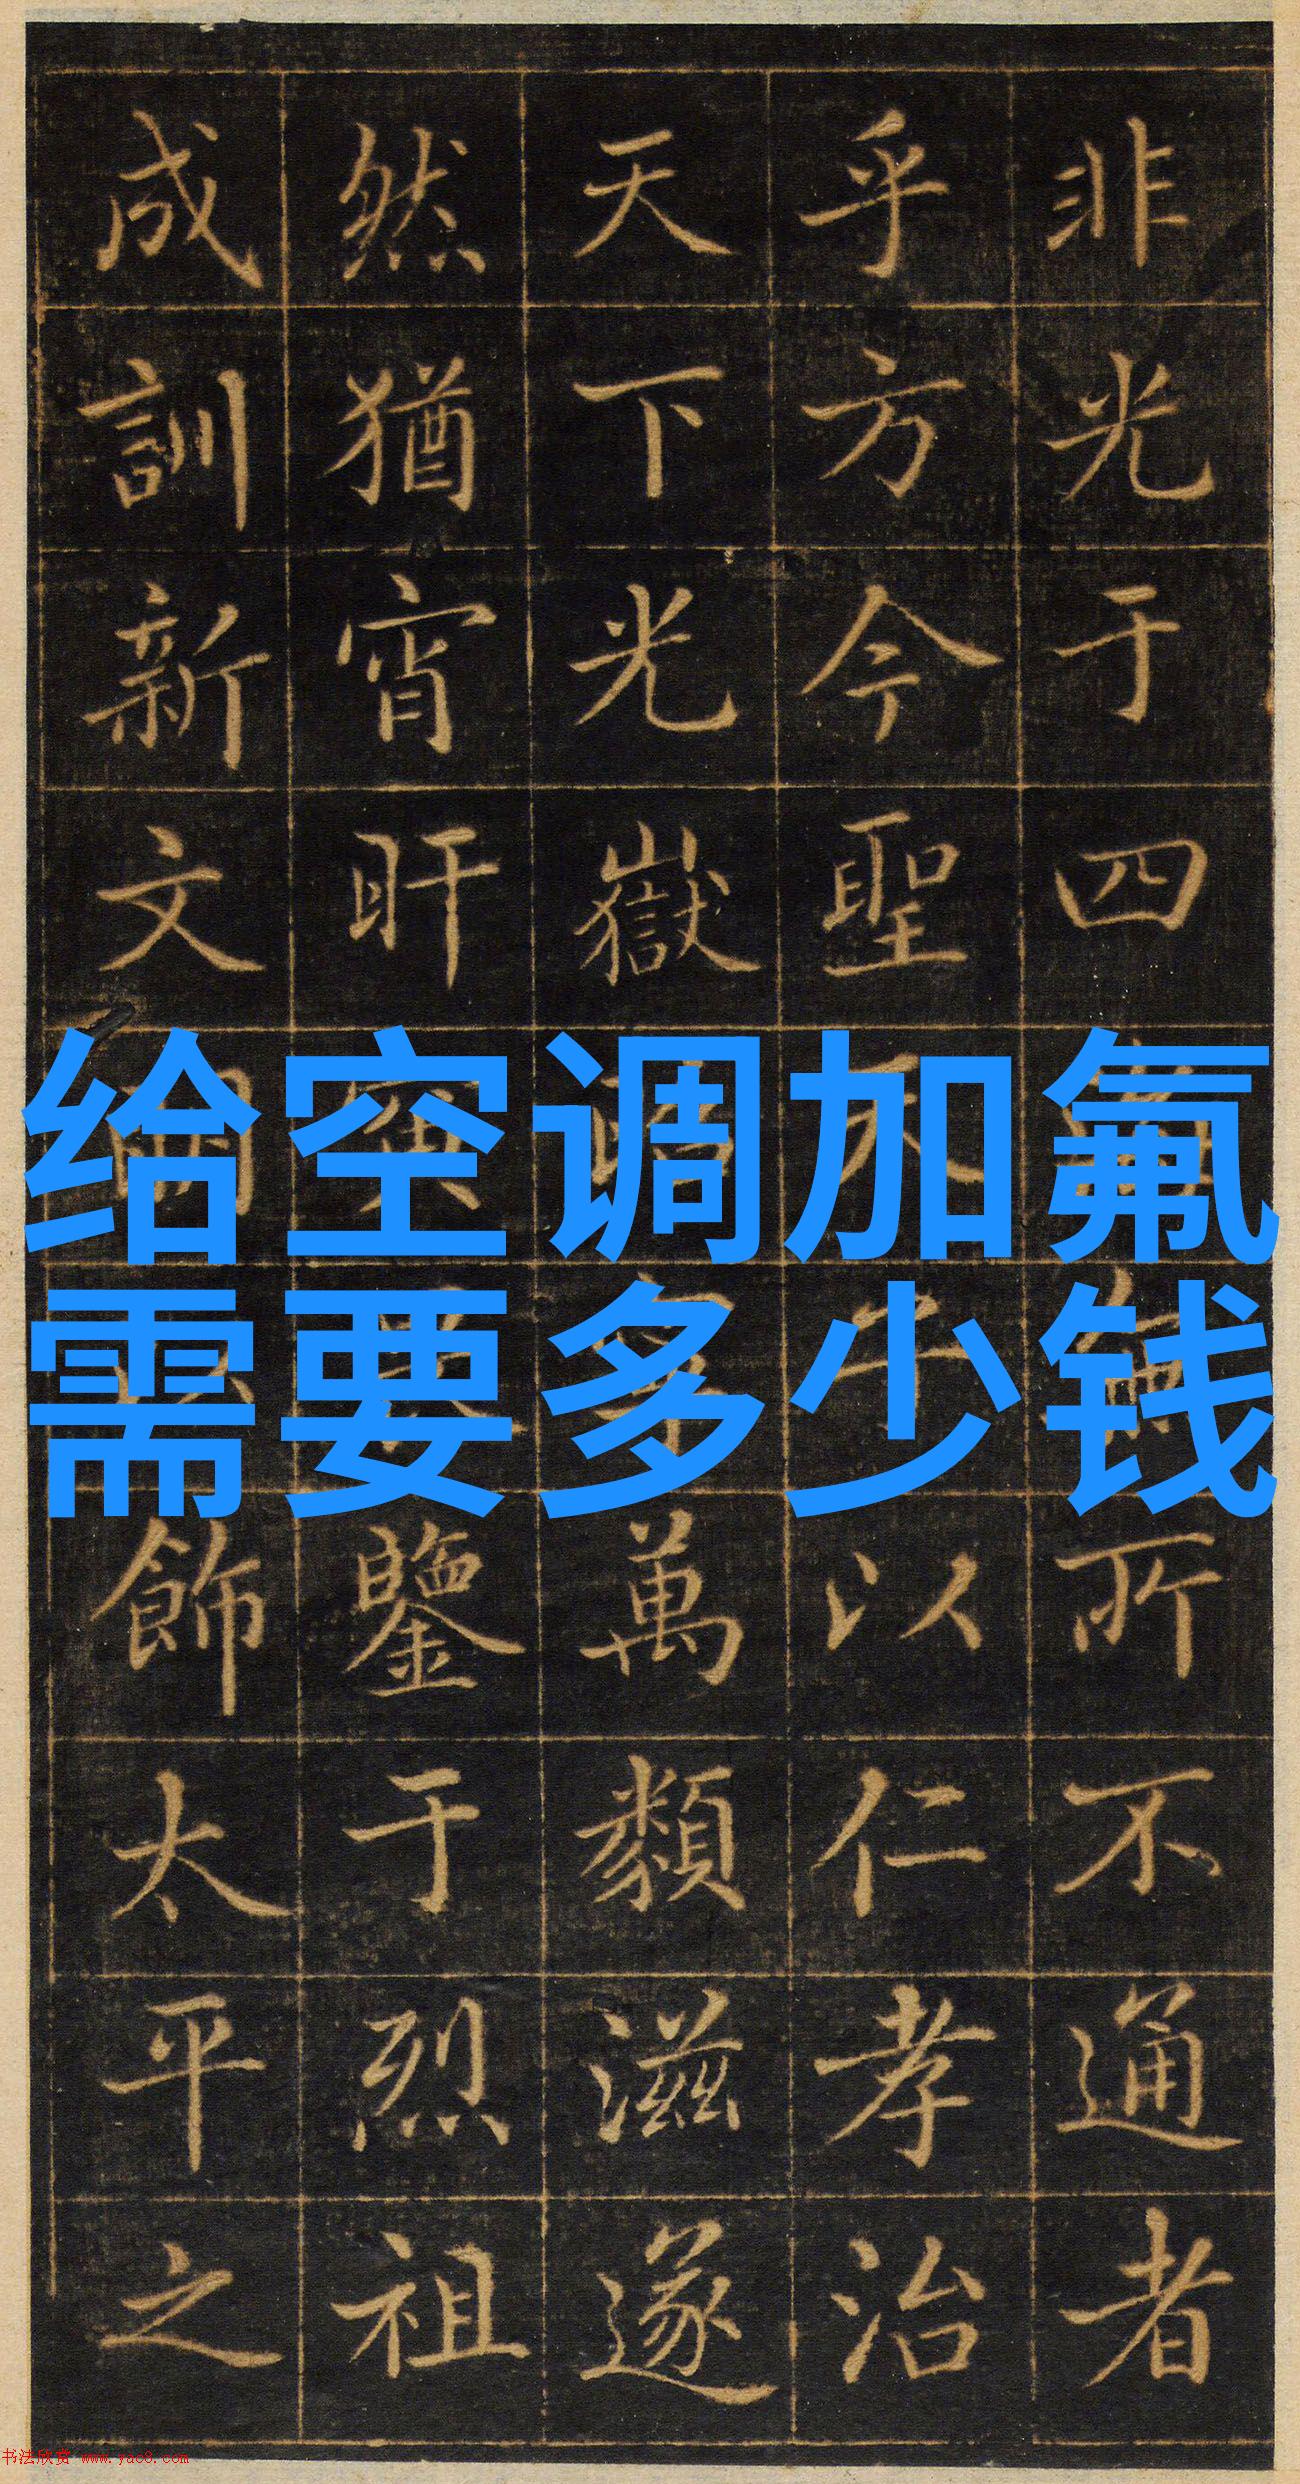 给空调加氟
需要多少钱
非光于四所不通者
乎方今聖天子以仁孝治
天下光嶽萬類滋遂
然猶宵旰寅鑒于烈祖
成訓新文飾太平之
书法欣赏 www.yac8.com